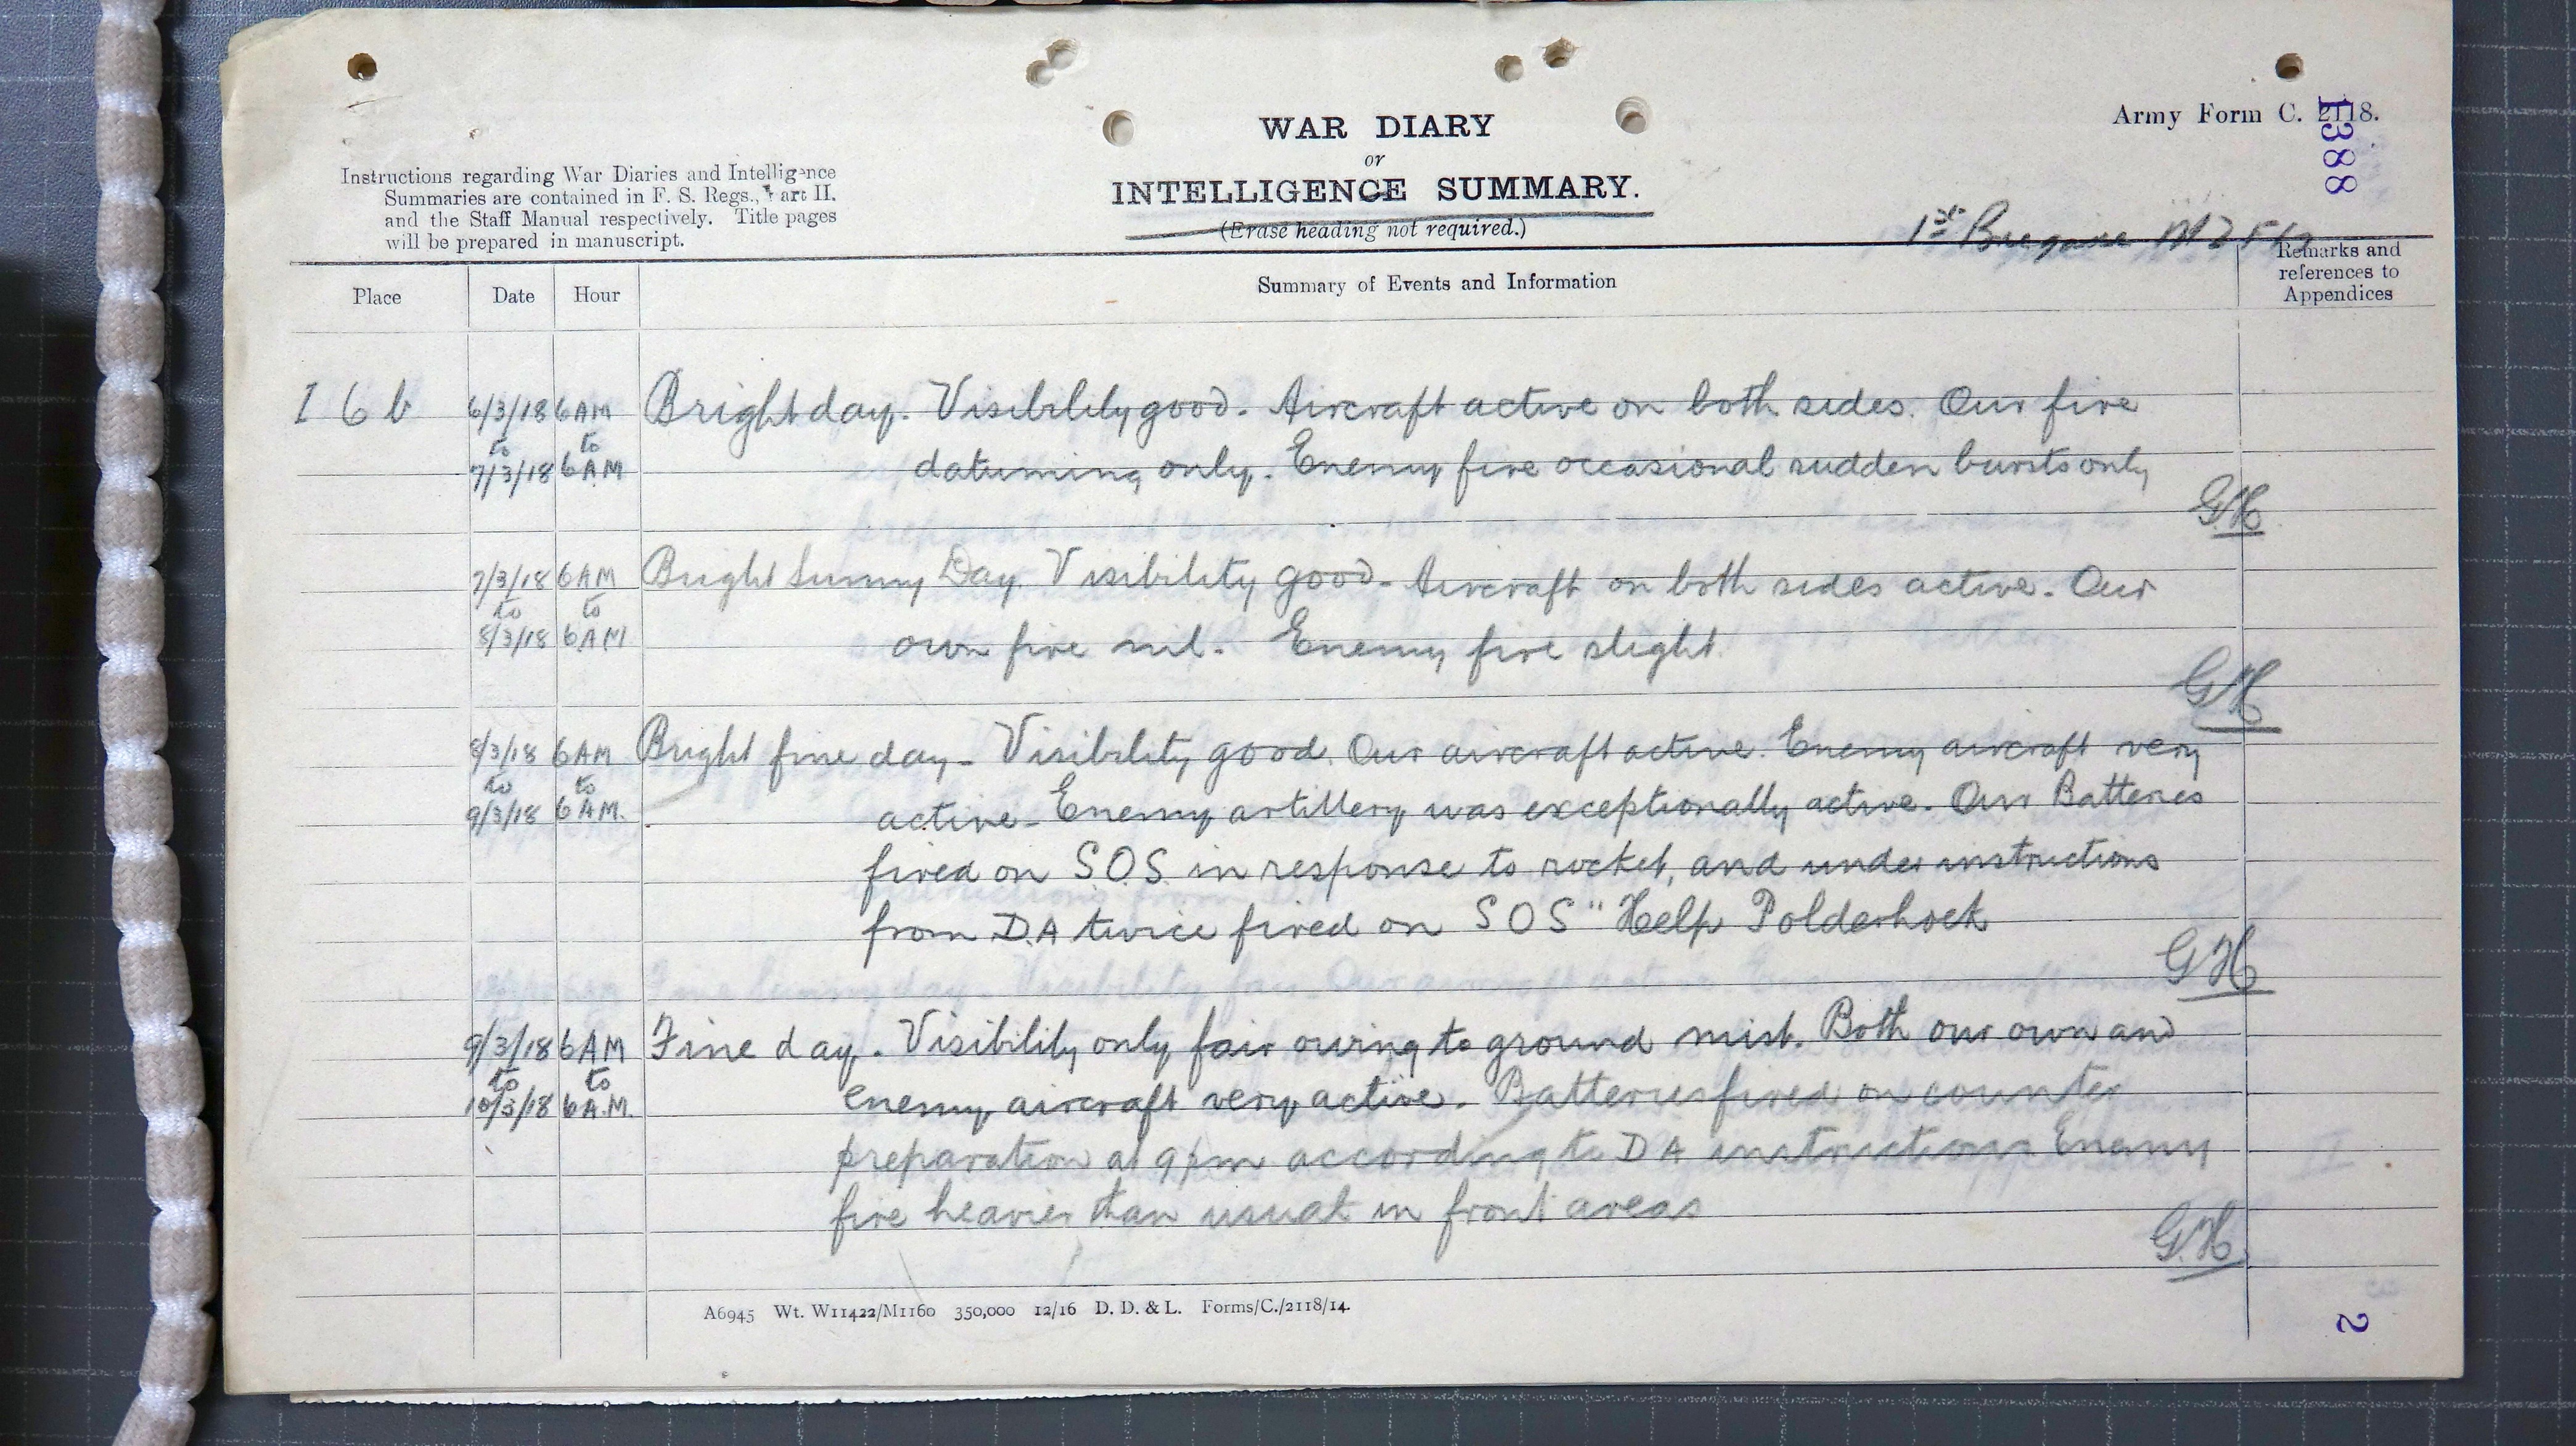 Army Form C. 2118.
1388
WAR DIARY
or
INTELLIGENCE SUMMARY.
(Erase heading not required.)
Instructions regarding War Diaries and Intelligence
Summaries are contained in F. S. Regs., Part II.
and the Staff Manual respectively. Title pages
will be prepared in manuscript.
1st Brigade NZFA
Place Date Hour Summary of Events and Information Remarks and
references to
Appendices
I 6 b 6/3/18 6AM Bright day. Visibility good. Aircraft active on both sides. Our fire
to to
7/3/18 6AM datuming only. Enemy fire occasional sudden bursts only
GH
7/3/18 6AM Bright Sunny Day. Visibility good. Aircraft on both sides active. Our
to to
8/3/18 6AM own fire nil. Enemy fire slight
GH
8/3/18 6AM Bright fine day. Visibility good. Our aircraft active. Enemy aircraft very
to to
9/3/18 6AM. active. Enemy artillery was exceptionally active. Our Batteries
fired on S.O.S. in response to rocket, and under instructions
from D.A twice fired on SOS "Help Polderhoek
GH
9/3/18 6AM Fine day. Visibility only fair owing to ground mist. Both our own and
to to
10/3/18 6A.M. enemy aircraft very active. Batteries fired on counter
preparation at 9pm according to DA instructions Enemy
fire heavier than usual in front areas
G.H.
A6945 Wt. W11422/M1160 350,000 12/16 D. D. & L. Forms/C./2118/14.
2